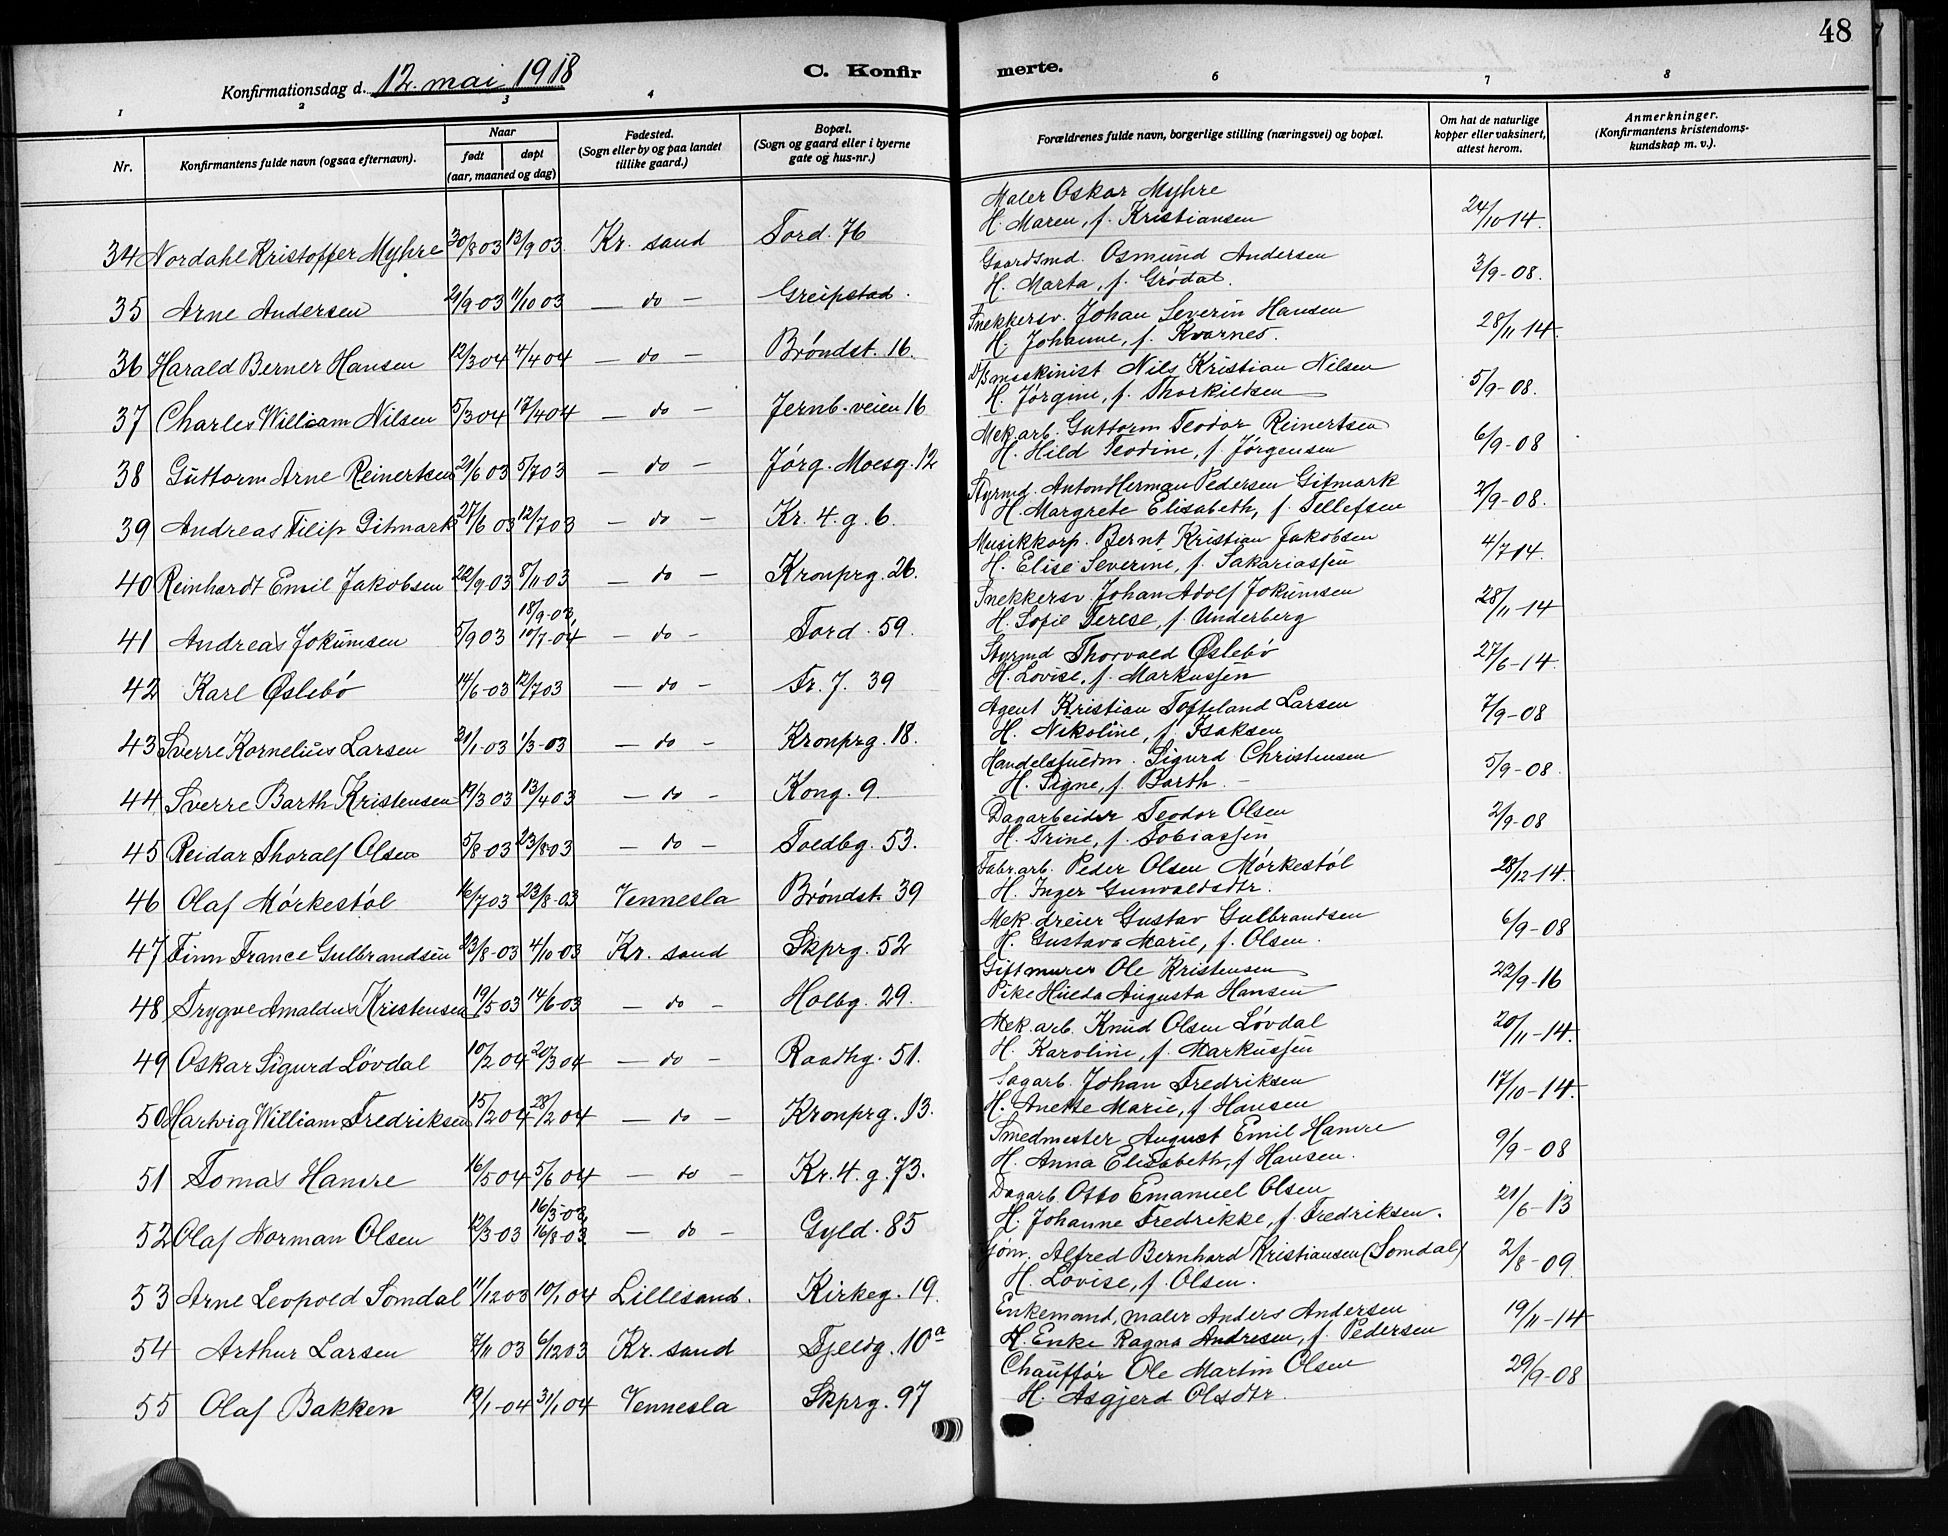 48
Konfirmationsdag d. 12. mai 1918
C. Konfir merte.
1 2 3 4 6 7 8
Nr.
Konfirmantens fulde navn (ogsaa efternavn).
Naar
født døpt
(aar, maaned og dag)
Fødested.
(Sogn eller by og paa landet
tillike gaard.)
Bopæl.
(Sogn og gaard eller i byerne
gate og hus-nr.)
Forældrenes fulde navn, borgerlige stilling (næringsvei) og bopæl.
Om hat de naturlige
kopper eller vaksinert,
attest herom.
Anmerkninger.
(Konfirmantens kristendoms-
kundskap m. v.).
Maler Oskar Myhre
34 Nordahl Kristoffer Myhre 30/8 03 13/9 03 Kr. sand Tord. 76 H. Maren, f. Kristiansen 24/10-14.
Gaardsmd. Osmund Andersen
35 Arne Andersen 21/9-03 11/10 03 — do — Greipstad. H. Marta, f. Grødal. 3/9-08.
Snekkersv. Johan Severin Hansen
36 Harald Berner Hansen 12/3 04 4/4 04 — do — Brøndst. 16. H. Johanne, f. Kvarnes. 28/11-14.
D/Bmaskinist Nils Kristian Nilsen
37 Charles William Nilsen 5/3 04 17/4 04 — do — Jernb.veien 16 H. Jørgine, f. Thorkildsen 5/9-08.
Mek. arb. Guttorm Teodor Reinertsen
38 Guttorm Arne Reinertsen 21/6 03 5/7 03 — do — Jørg. Moesg. 12 H. Hild Teodine, f. Jørgensen 6/9-08
Styrmd. Anton Herman Pedersen Gitmark
39 Andreas Filip Gitmark 27/6 03 12/7 03 — do — Kr. 4. g. 6. H. Margrete Elisabeth, f. Tellefsen 2/9-08.
Musikkorp. Bernt Kristian Jakobsen
40 Reinhardt Emil Jakobsen 22/9-03 8/11-03 — do — Kronprg. 26. H. Elise Severine, f. Sakariassen 4/7 14.
Snekkersv. Johan Adolf Jokumsen
41 Andreas Jokumsen 5/9 03 18/9-03, 10/7-04 — do — Tord. 59. H. Sofie Terese, f. Anderberg 28/11-14
Styrmd Thorvald Øslebø
42 Karl Øslebø 14/6-03 12/7 03 — do — Fr. J. 39 H. Lovise, f. Markussen 27/6-14.
Agent Kristian Tofteland Larsen
43 Sverre Kornelius Larsen 21/1-03 1/3-03 — do — Kronprg. 18. H. Nikoline, f. Isaksen 7/9-08
Handelsfuldm. Sigurd Christensen
44 Sverre Barth Kristensen 19/3 03 13/4 03 — do — Kong. 9. H. Signe, f. Barth — 5/9-08.
Dagarbeider Teodor Olsen
45 Reidar Thoralf Olsen 5/8-03 23/8 03 — do — Toldbg. 53. H. Trine, f. Tobiassen 2/9-08
Fabr.arb. Peder Olsen Mørkestøl
46 Olaf Mørkestøl 16/7 03 23/8-03 Vennesla Brøndst. 39 H. Inger Gunvaldsdtr. 28/12-14.
Mek. dreier Gustav Gulbrandsen
47 Finn France Gulbrandsen 23/8-03 4/10-03 Kr. sand Skprg. 52 H. Gustava Marie, f. Olsen. 6/9-08
Gift murer Ole Kristensen
48 Trygve Amaldus Kristensen 19/5 03 14/6-03 — do — Holbg. 29. Pike Hulda Augusta Hansen 22/9-16
Mek. arb. Knud Olsen Løvdal
49 Oskar Sigurd Løvdal 10/2 04 20/3 04 — do — Raadhg. 51. H. Karoline, f. Markussen 20/11-14.
Sagarb. Johan Fredriksen
50 Hartvig William Fredriksen 15/2 04 28/2 04 — do — Kronprg. 13. H. Anette Marie, f. Hansen 17/10-14.
Smedmester August Emil Hamre
51 Tomas Hamre 16/5 04 5/6 04 — do — Kr. 4. g. 73. H. Anna Elisabeth, f. Hansen. 9/9-08
Dagarb. Otto Emanuel Olsen
52 Olaf Norman Olsen 12/3-03 16/3-03, 16/8-03. — do — Gyld. 85 H. Johanne Fredrikke, f. Fredriksen. 21/6-13
Sjøm. Alfred Bernhard Kristiansen (Somdal)
53 Arne Leopold Somdal 11/12 03 10/1 04 Lillesand. Kirkeg. 19. H. Lovise, f. Olsen. 2/8-09.
Enkemand, maler Anders Andersen
54 Arthur Larsen 7/11 03 6/12 03 Kr. sand Fjeldg. 10a H. Enke Ragna Andresen, f. Pedersen 19/11-14
Chauffør Ole Martin Olsen
55 Olaf Bakken 19/1-04 31/1 04 Vennesla Skprg. 97 H. Asgjerd Olsdtr. 29/9-08